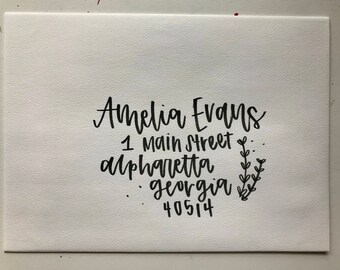 Amelia Evans
1 Main Street
alpharetta
georgia
40514